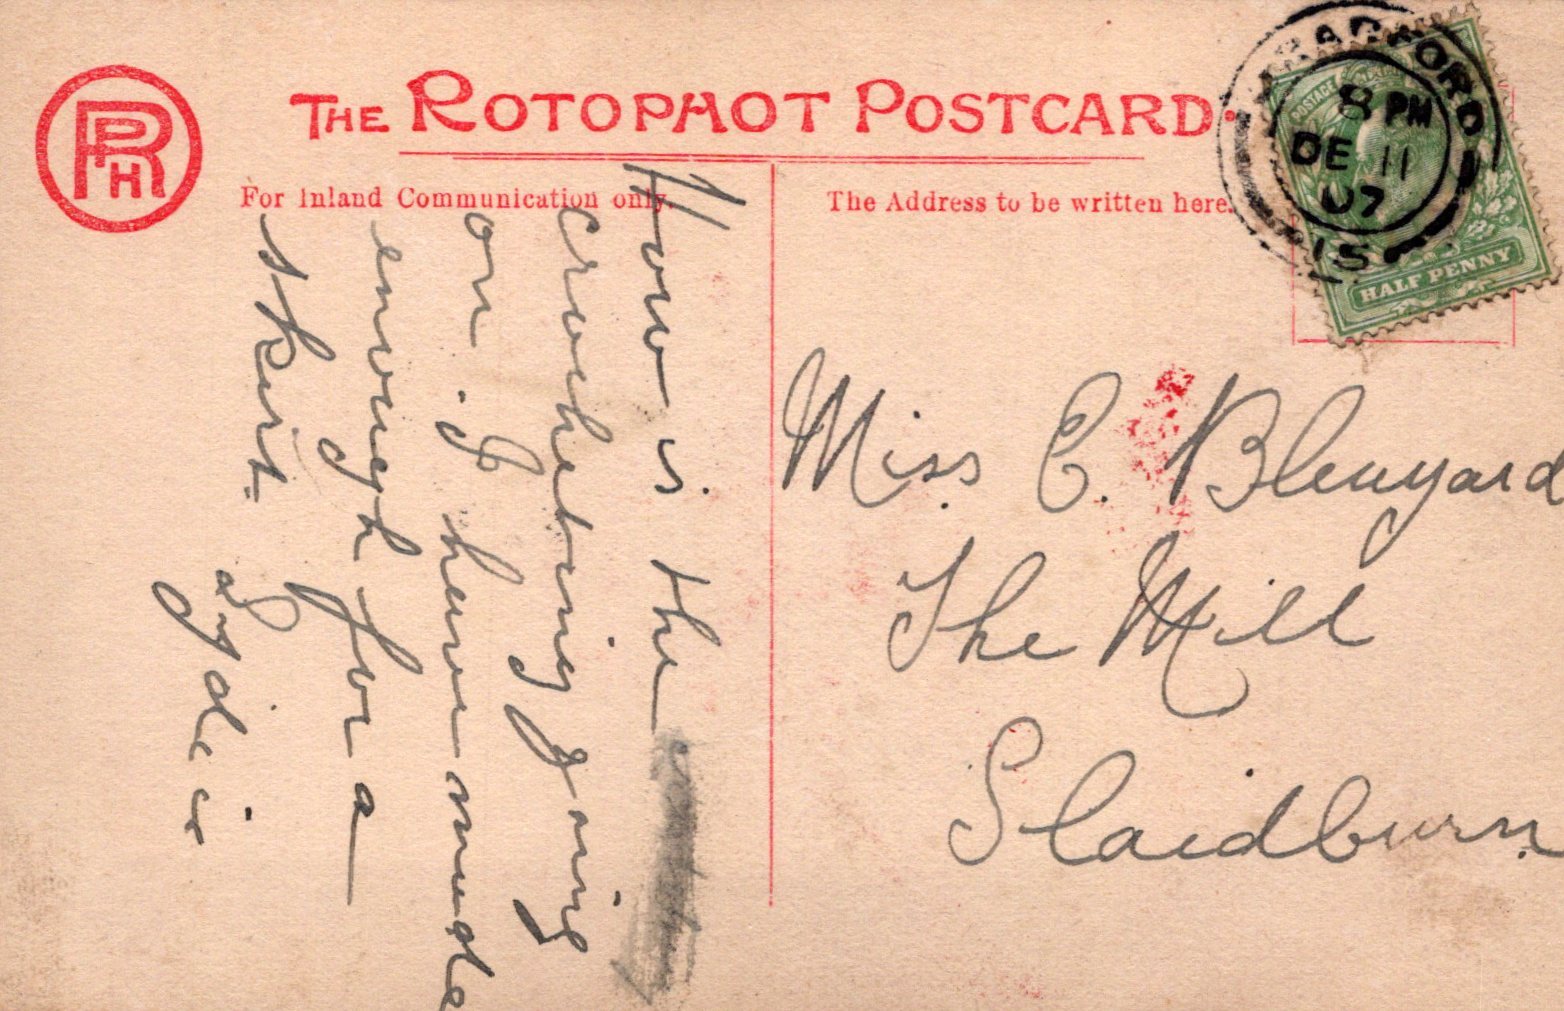 RPH
THE ROTOPHOT POSTCARD.
For Inland Communication only.
The Address to be written here.
BRADFORD
8 PM
DE 11
07
15
POSTAGE
HALF PENNY
How is the
crocheting going
on. I have made
enough for a
skirt
Miss E. Blenyard
The Mill
Slaidburn